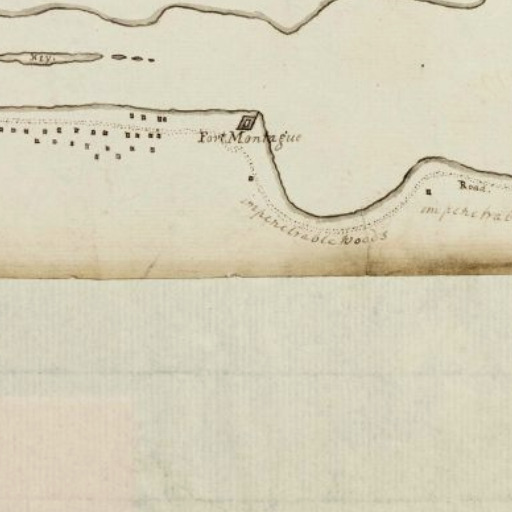 Key.
Fort Montague
Road.
impenetrable Woods
impenetrab